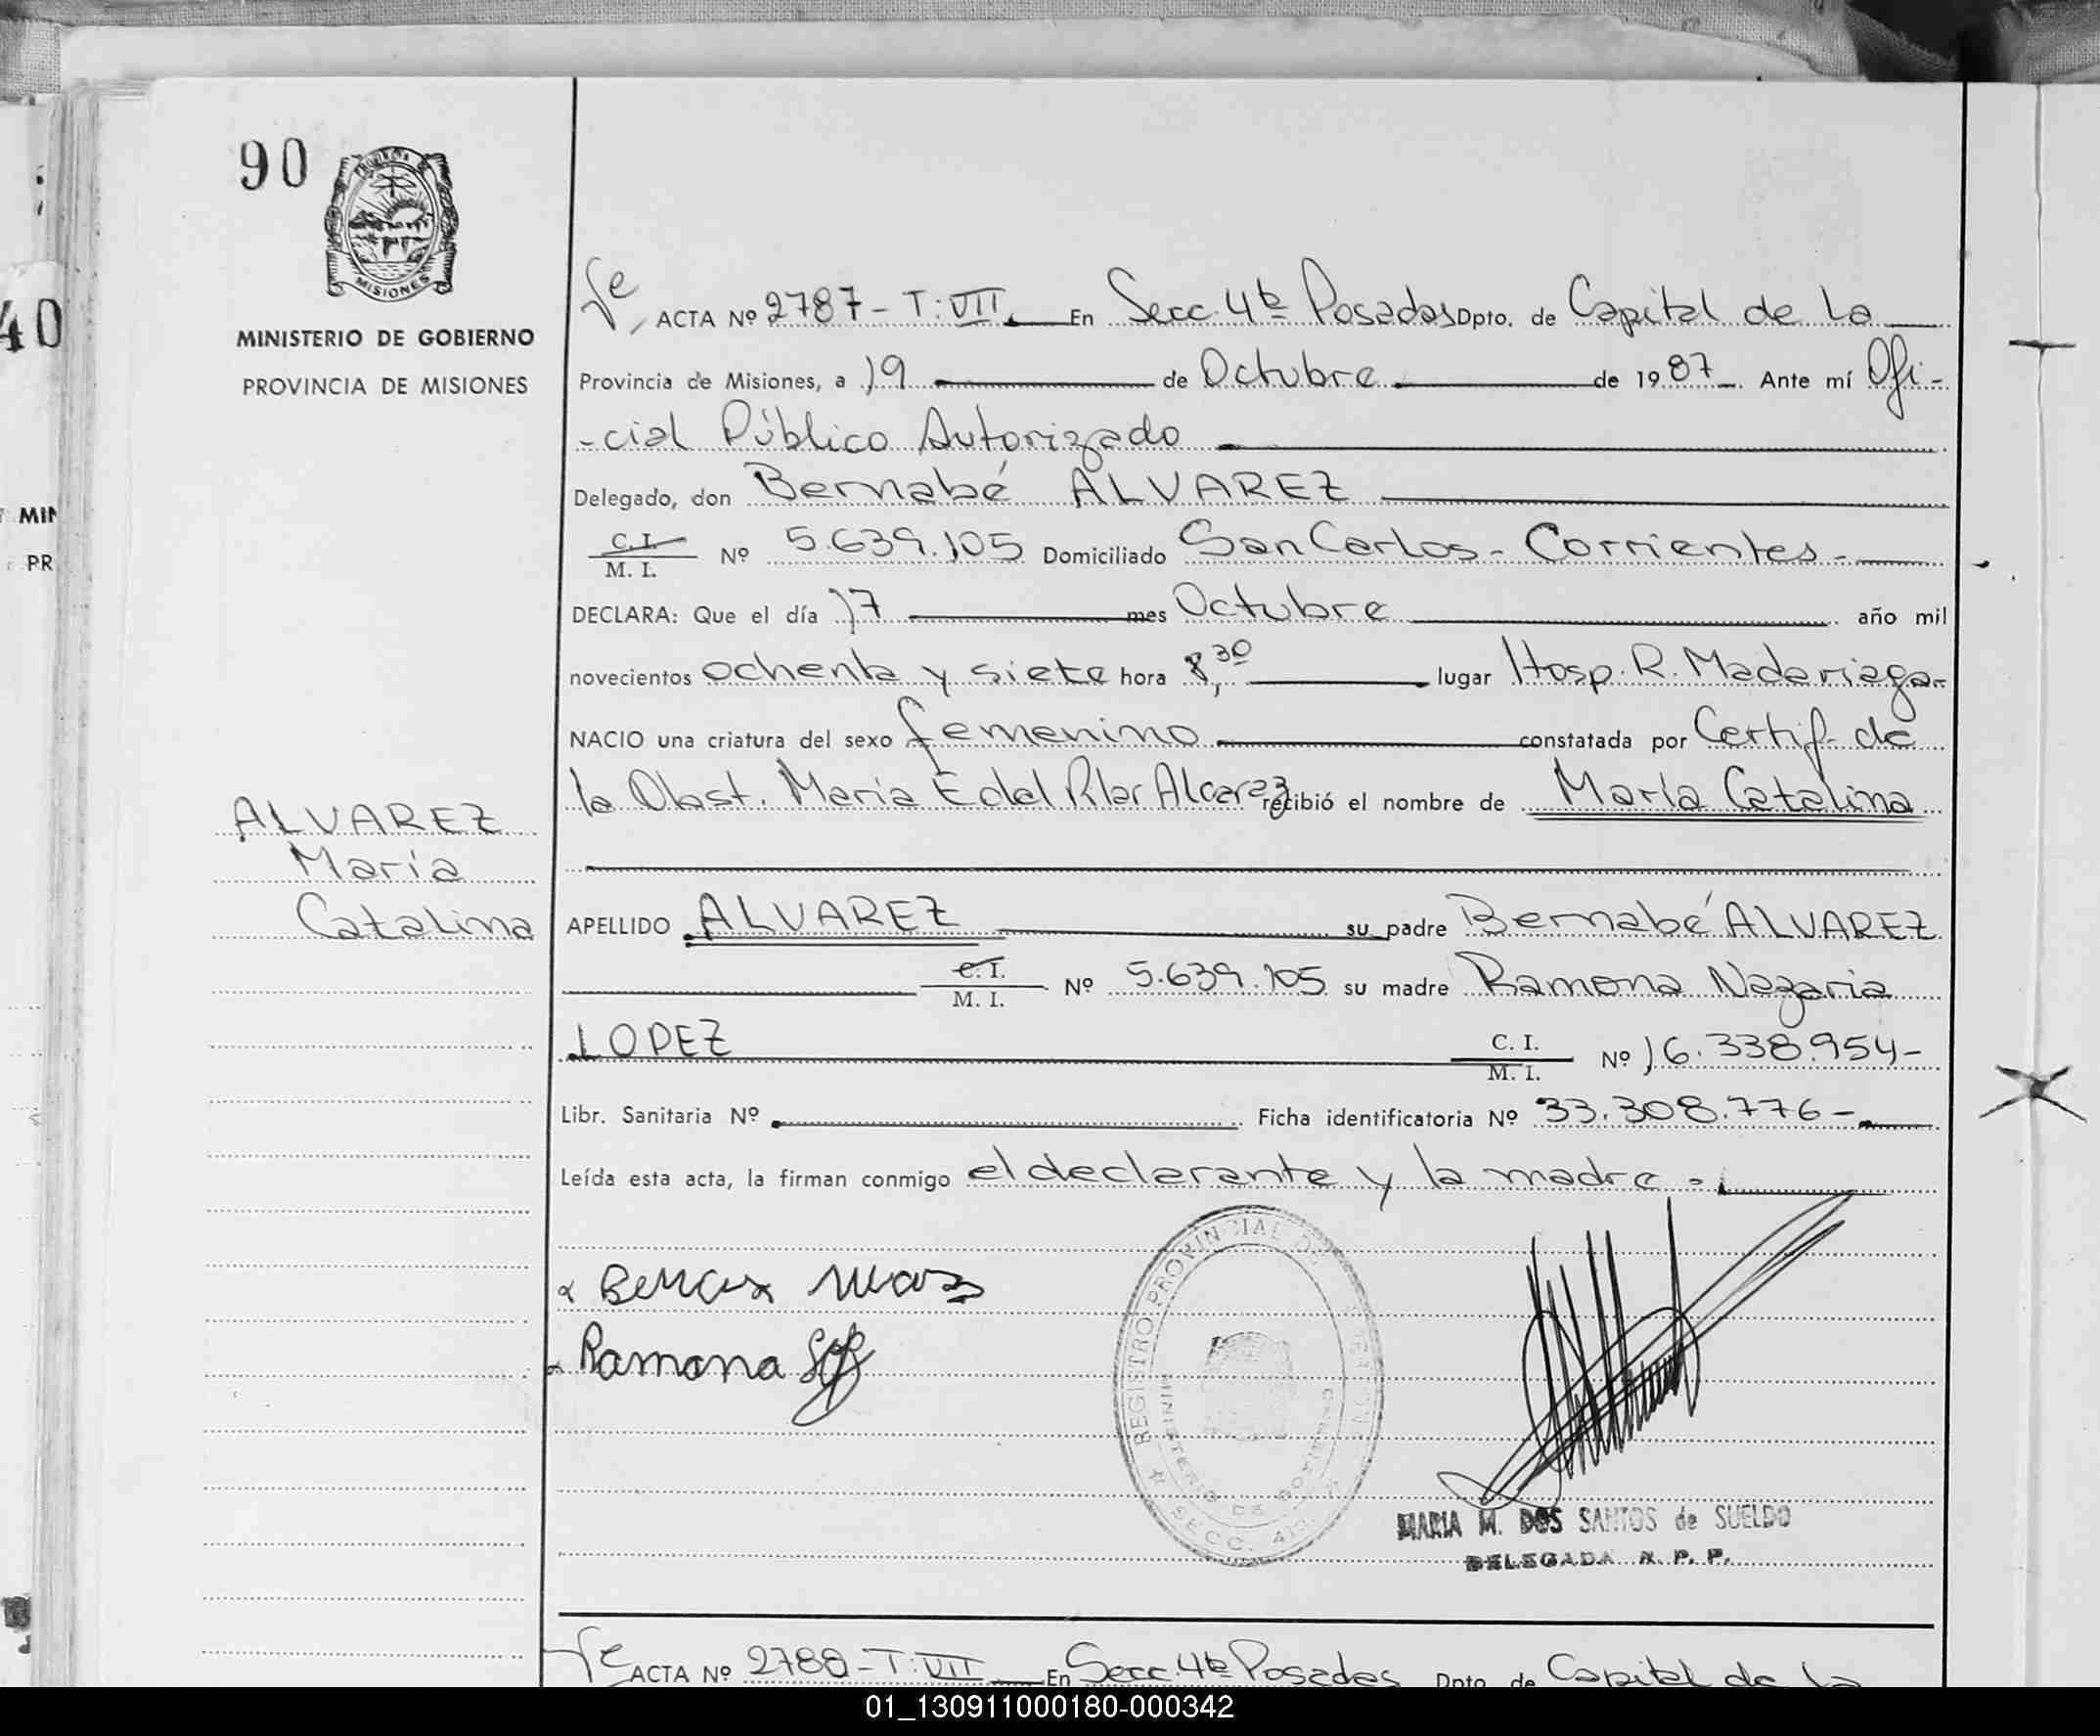 90
PROVINCIA DE
MISIONES
MINISTERIO DE GOBIERNO
PROVINCIA DE MISIONES
40
MIN
PR
ALVAREZ
María
Catalina
Fe, ACTA Nº 2787 - T: VII. En Secc. 4ta Posadas Dpto. de Capital de La
Provincia de Misiones, a 19 de Octubre de 1987 Ante mí Ofi-
-cial Público Autorizado
Delegado, don Bernabé ALVAREZ
C. I. / M. I. Nº 5.639.105 Domiciliado San Carlos - Corrientes -
DECLARA: Que el día 17 mes Octubre año mil
novecientos ochenta y siete hora 8,30 lugar Hosp. R. Madariaga-
NACIO una criatura del sexo femenino constatada por Certif- de
la Obst. María E del Pilar Alcaraz recibió el nombre de María Catalina
APELLIDO ALVAREZ su padre Bernabé ALVAREZ
C. I. / M. I. Nº 5.639.105 su madre Ramona Nazaria
LOPEZ C. I. / M. I. Nº 16.338.954-
Libr. Sanitaria Nº Ficha identificatoria Nº 33.308.776-
Leída esta acta, la firman conmigo el declarante y la madre -
Ramona
REGISTRO PROVINCIAL DE
MINISTERIO DE GOBIERNO
SECC. 4ta
MARIA M. DOS SANTOS de SUELDO
DELEGADA R. P. P.
Fe ACTA Nº 2788 - T: VII En Secc. 4ta Posadas Dpto de Capital de La
01_130911000180-000342